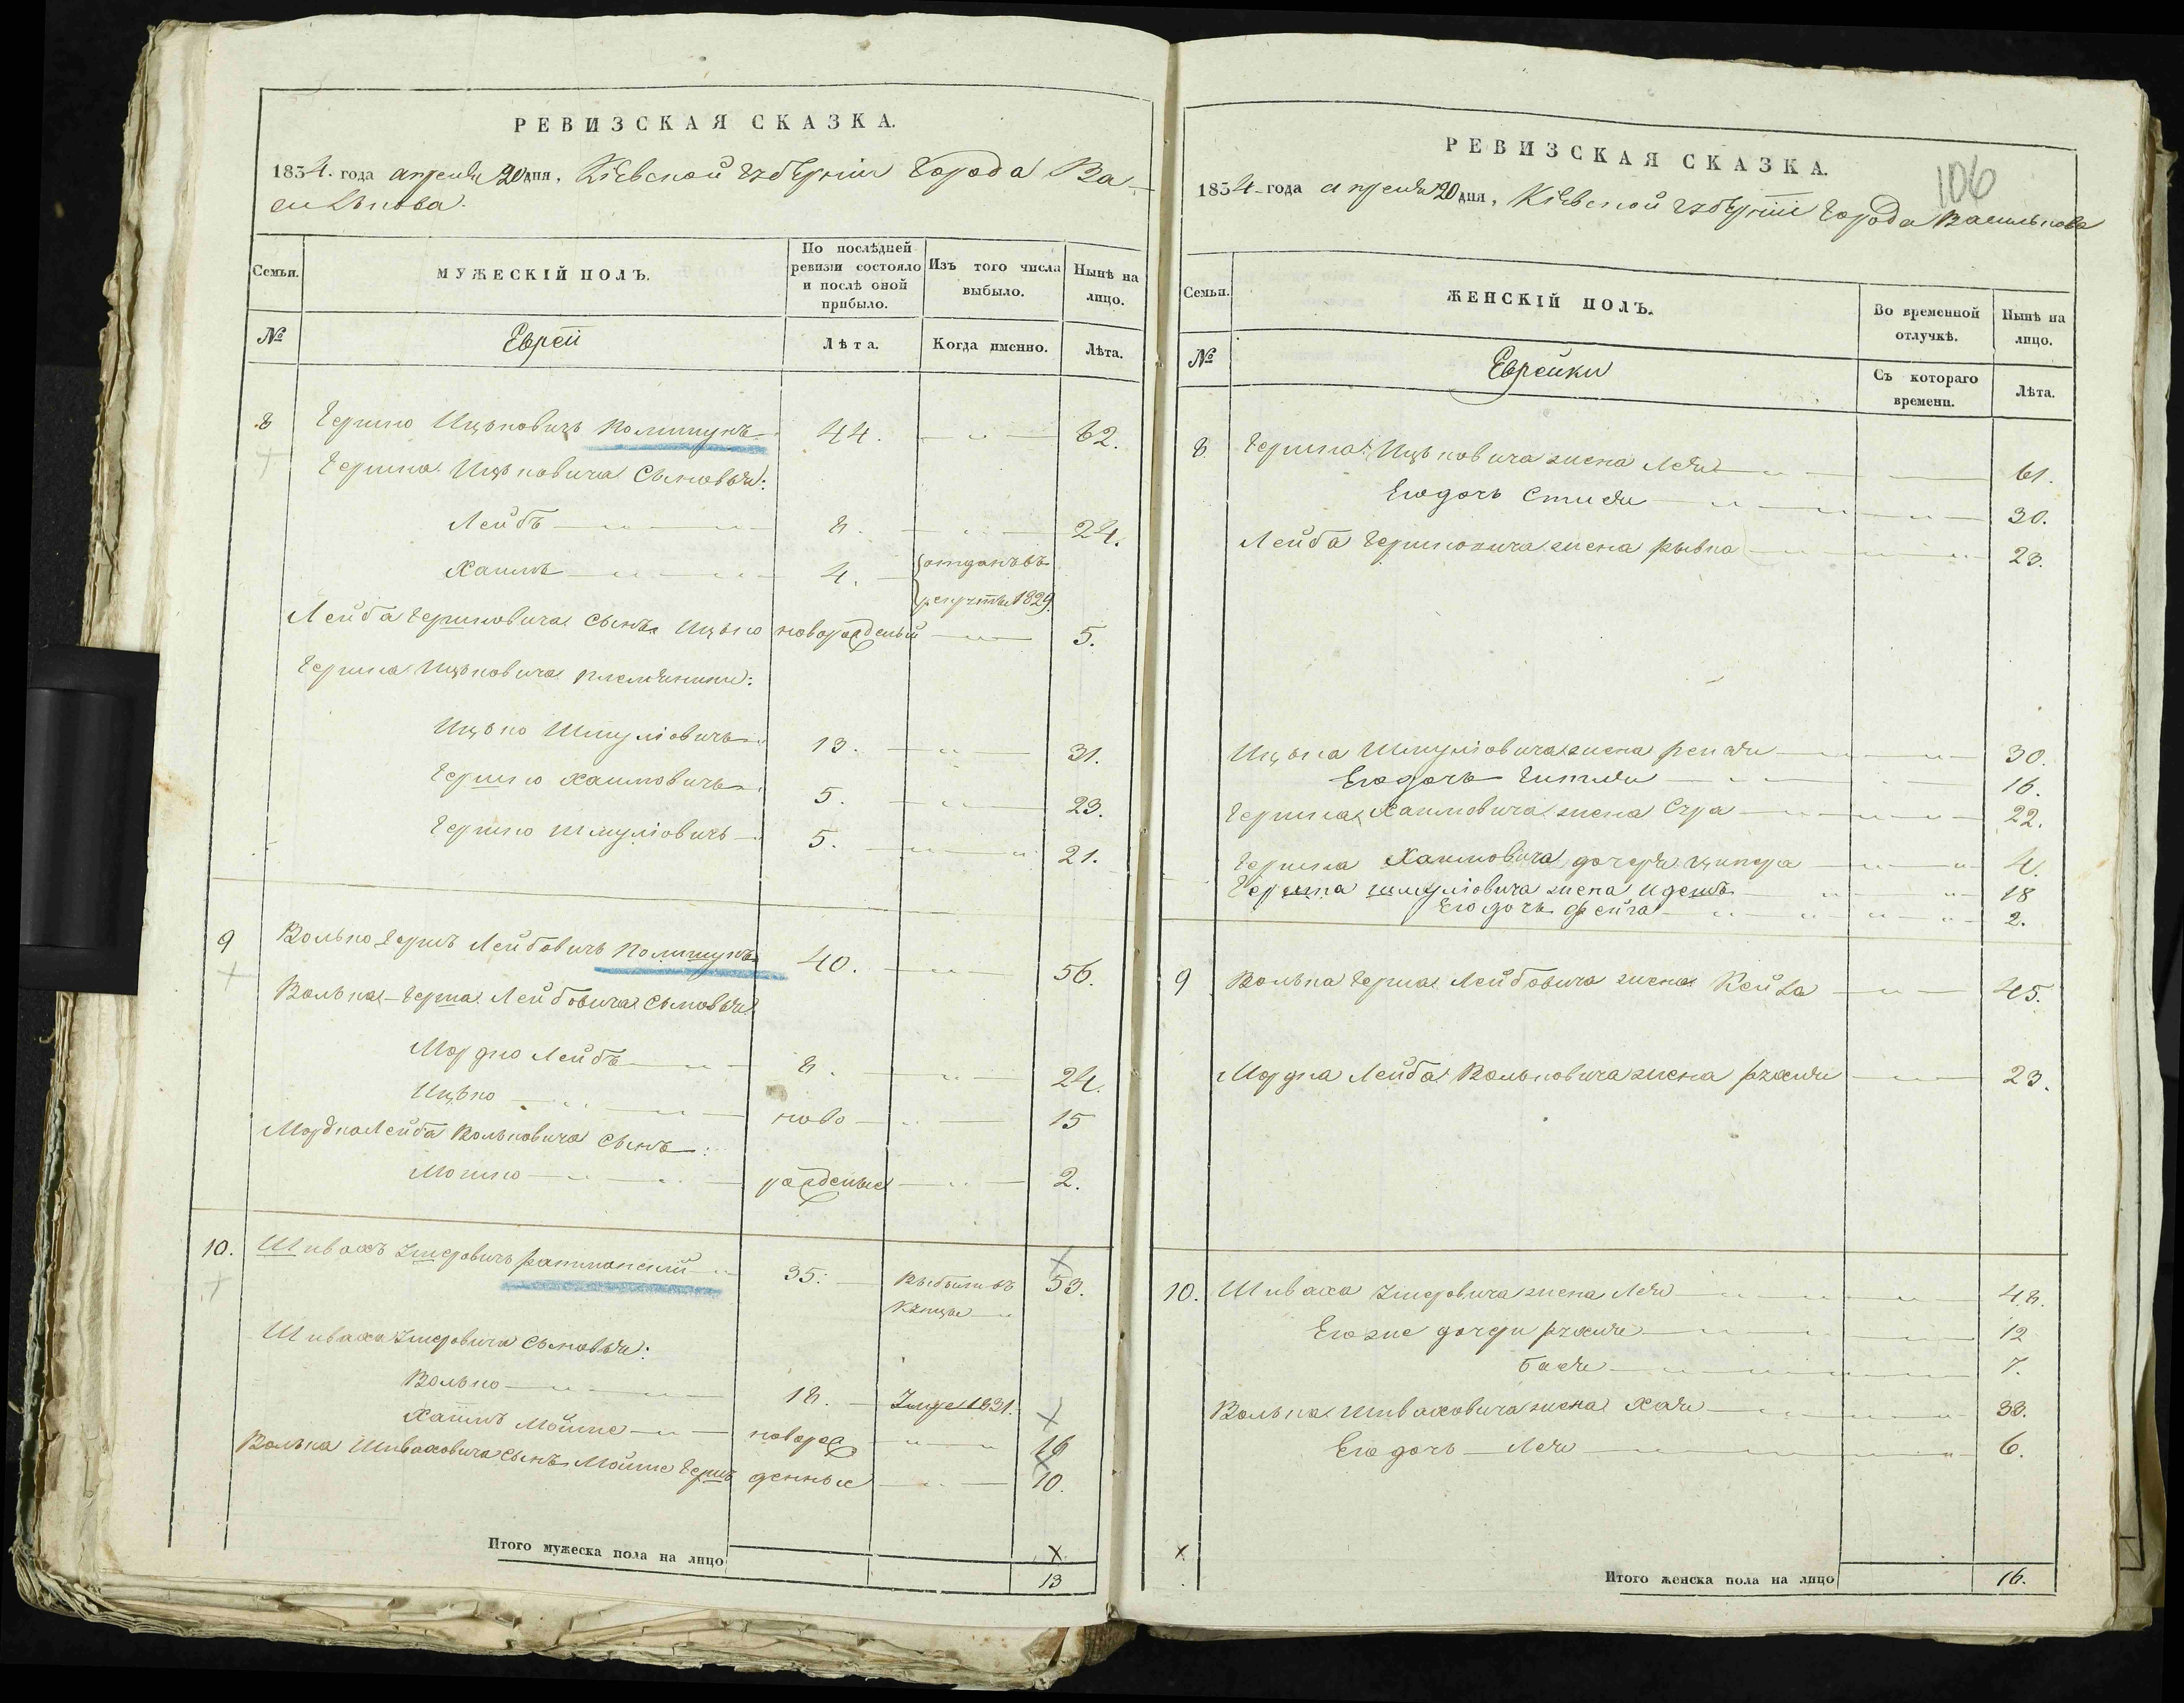 РЕВИЗСКАЯ СКАЗКА.
1834. года апреля 20 дня, Кіевской губерніи Города Ва-
силькова.
Семьи.
МУЖЕСКІЙ ПОЛЪ.
По послѣдней ревизіи состояло и послѣ оной прибыло.
Изъ того числа выбыло.
Нынѣ на лицо.
№
Евреи
Лѣта.
Когда именно.
Лѣта.
8 Гершко Ицьковичъ Полищукъ 44. 62.
Гершка Ицьковича сыновья:
Лейбъ 8. 24.
Хаимъ 4. отданъ въ
рекруты 1829.
Лейба Гершковича сынъ Ицько новорожденый 5.
Гершка Ицьковича племянники:
Ицько Шмулiовичъ 13. 31.
Гершко Хаимовичъ 5. 23.
Гершко Шмулiовичъ 5. 21.
9 Волько Гершъ Лейбовичъ Полищукъ 40. 56.
Волька-Герша Лейбовича сыновья
Мордко Лейбъ 8. 24.
Ицько ново 15
Мордка Лейба Вольковича сынъ:
Мошко рожденые 2.
10. Шивахъ Рашманскій 35. Выбыли въ 53.
купцы
Шиваха сыновья:
Волько 18. 1831.
Хаимъ Мойше новорож 16
Волька Шиваховича сынъ Мойше Гершъ денные 10.
Итого мужеска пола на лицо
13
РЕВИЗСКАЯ СКАЗКА.
106
1834 года апреля 20 дня, Кіевской губерніи Города Василькова
Семьи.
ЖЕНСКІЙ ПОЛЪ.
Во временной отлучкѣ.
Нынѣ на лицо.
№
Еврейки
Съ котораго времени.
Лѣта.
8 Гершка Ицьковича жена Лея 61.
Его дочь Стися 30.
Лейба Гершковича жена Рывка 23.
Ицька Шмулiовича жена Рейзя 30.
Его дочь Гитля 16.
Гершка Хаимовича жена Сура 22.
Гершка Хаимовича дочеря Ципра 4.
Гершка Шмулiовича жена Идесь 18
Его дочь Фейга 2.
9 Волька Герша Лейбовича жена Кейла 45.
Мордка Лейба Вольковича жена Рухля 23.
10. Шиваха жена Лея 48.
Его же дочери Рухля 12
Бася 7.
Волька Шиваховича жена Хая 33.
Его дочь Лея 6.
Итого женска пола на лицо
16.